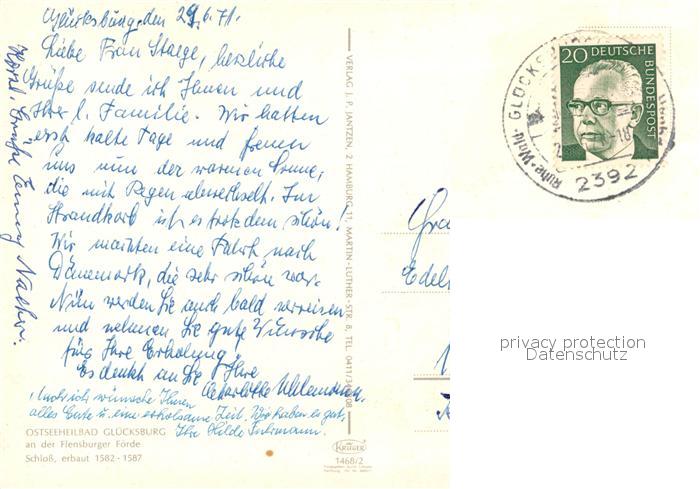 Glücksburg, den 29.6.71.
Liebe Frau Staege, herzliche
Grüße sende ich Ihnen und
Ihrer l. Familie. Wir hatten
erst kalte Tage und freuen
uns nun der warmen Sonne,
die mit Regen abwechselt. Im
Strandkorb ist es trotzdem schön!
Wir machten eine Fahrt nach
Dänemark, die sehr schön war.
Nun werden Sie auch bald verreisen
und nehmen Sie gute Wünsche
für Ihre Erholung
Es denkt an Sie Ihre
Charlotte Uhlemann.
Auch ich wünsche Ihnen
alles Gute u. eine erholsame Zeit. Wir haben es gut,
Ihre Hilde Fuhrmann.
Herzl. Grüße
OSTSEEHEILBAD GLÜCKSBURG
an der Flensburger Förde
Schloß, erbaut 1582-1587
VERLAG J. P. JANTZEN, 2 HAMBURG 11, MARTIN-LUTHER-STR 8, TEL. 0411/
KRÜGER
1468/2
20 DEUTSCHE
BUNDESPOST
GLÜCKSBURG
Ruhe · Wald ·
2392
Edel
privacy protection
Datenschutz